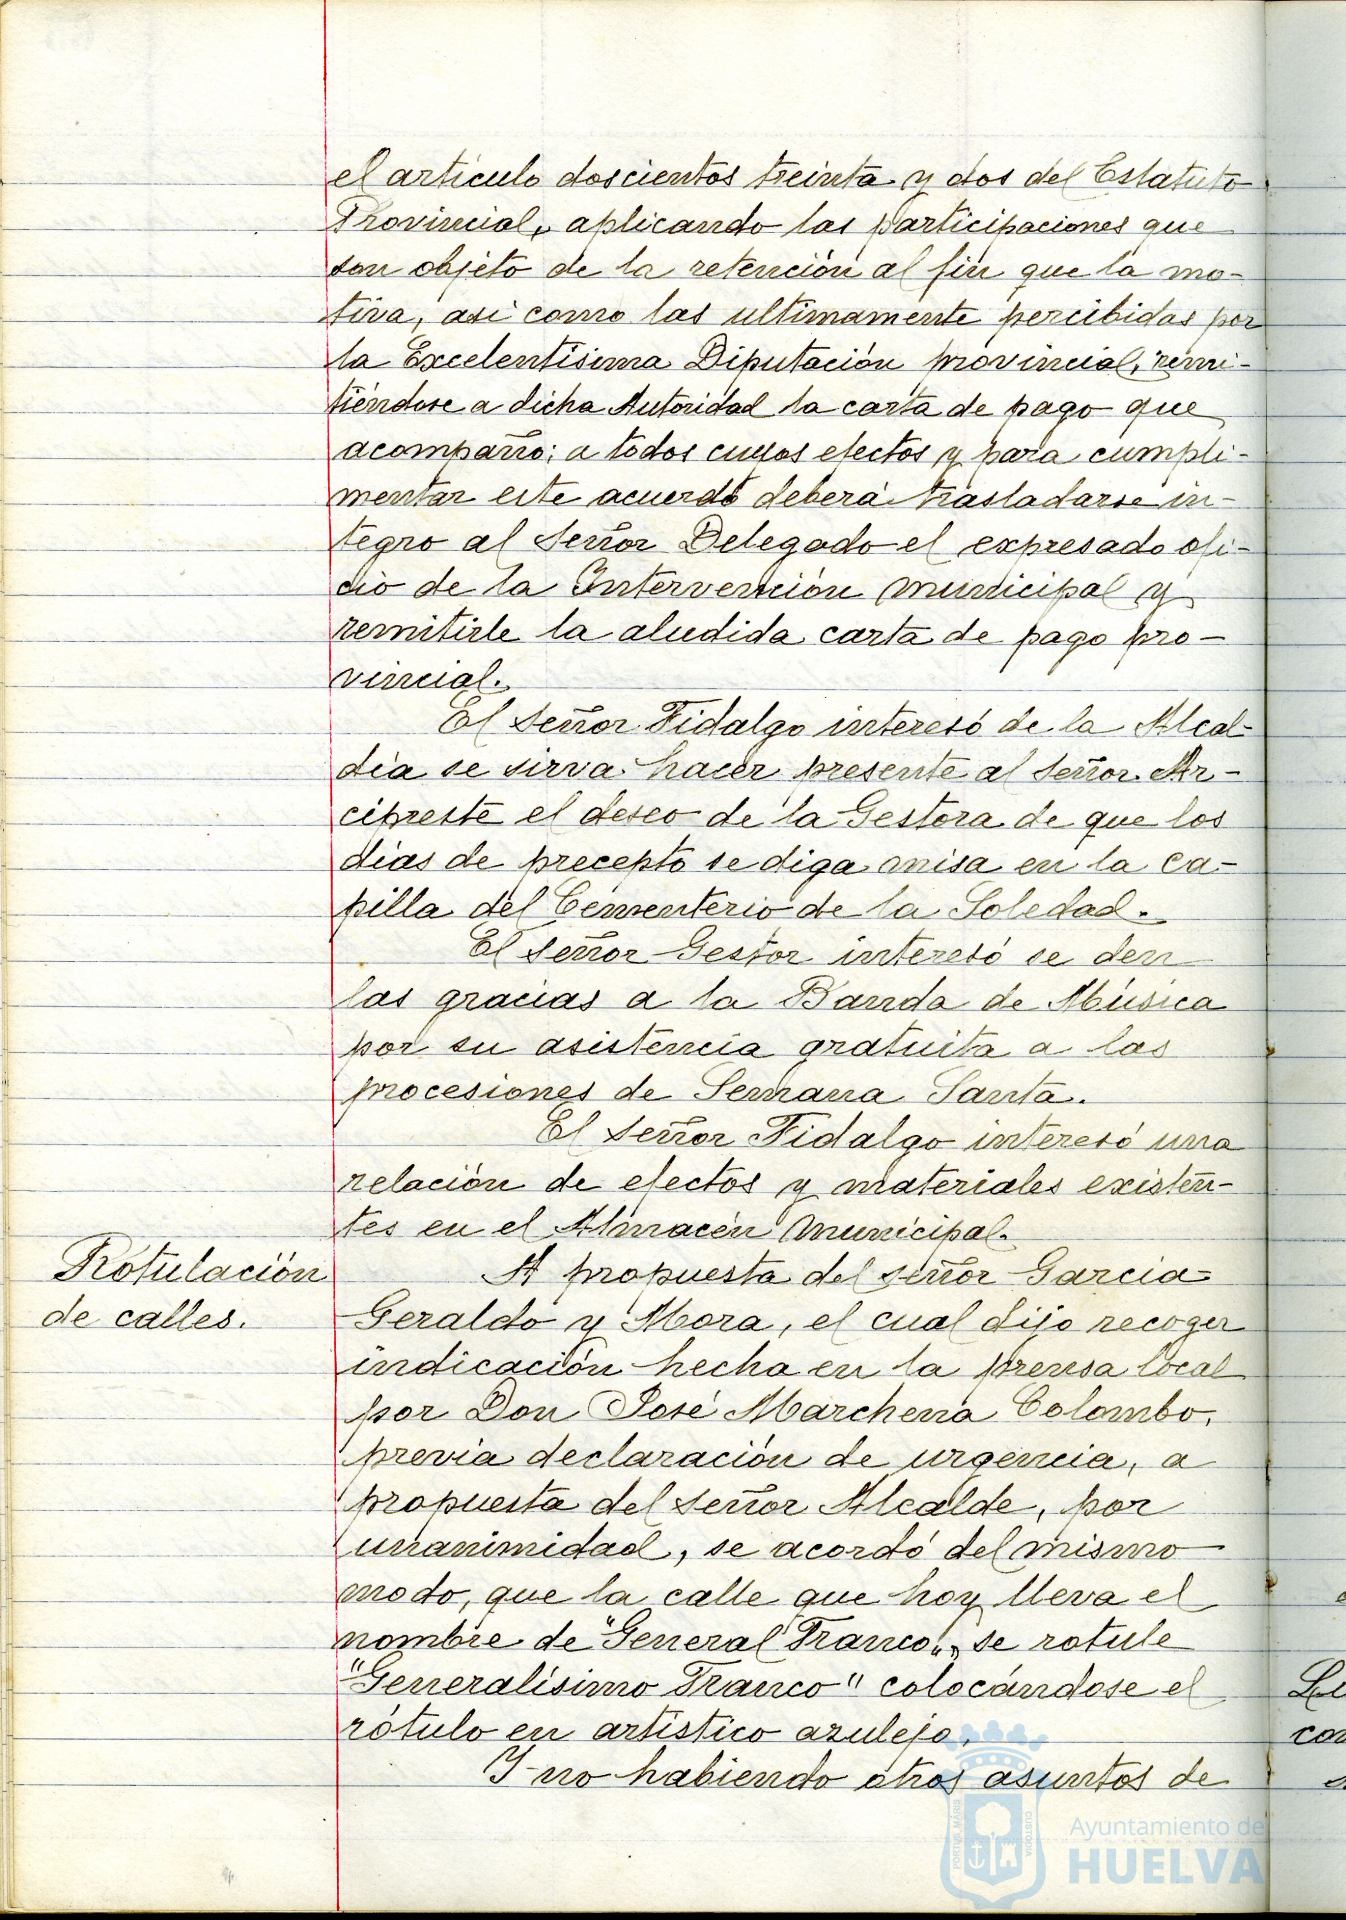 el artículo doscientos treinta y dos del Estatuto
Provincial, aplicando las participaciones que
son objeto de la retención al fin que la mo-
tiva, asi como las ultimamente percibidas por
la Excelentísima Diputación provincial, remi-
tiéndose a dicha Autoridad la carta de pago que
acompaño; a todos cuyos efectos y para cumpli-
mentar este acuerdo deberá trasladarse in-
tegro al Señor Delegado el expresado ofi-
cio de la Intervención municipal y
remitirle la aludida carta de pago pro-
vincial.
El Señor Fidalgo interesó de la Alcal-
día se sirva hacer presente al Señor Ar-
cipreste el deseo de la Gestora de que los
dias de precepto se diga misa en la ca-
pilla del Cementerio de la Soledad.
El señor Gestor interesó se den
las gracias a la Banda de Música
por su asistencia gratuita a las
procesiones de Semana Santa.
El Señor Fidalgo interesó una
relación de efectos y materiales existen-
tes en el Almacén Municipal.
Rotulación
de calles.
A propuesta del señor Garcia-
Geraldo y Mora, el cual dijo recoger
indicación hecha en la prensa local
por Don José Marchena Colombo,
previa declaración de urgencia, a
propuesta del Señor Alcalde, por
unanimidad, se acordó del mismo
modo, que la calle que hoy lleva el
nombre de "General Franco", se rotule
"Generalísimo Franco" colocándose el
rótulo en artístico azulejo.
Y no habiendo otros asuntos de
PORTUS MARIS
CUSTODIA
Ayuntamiento de
HUELVA